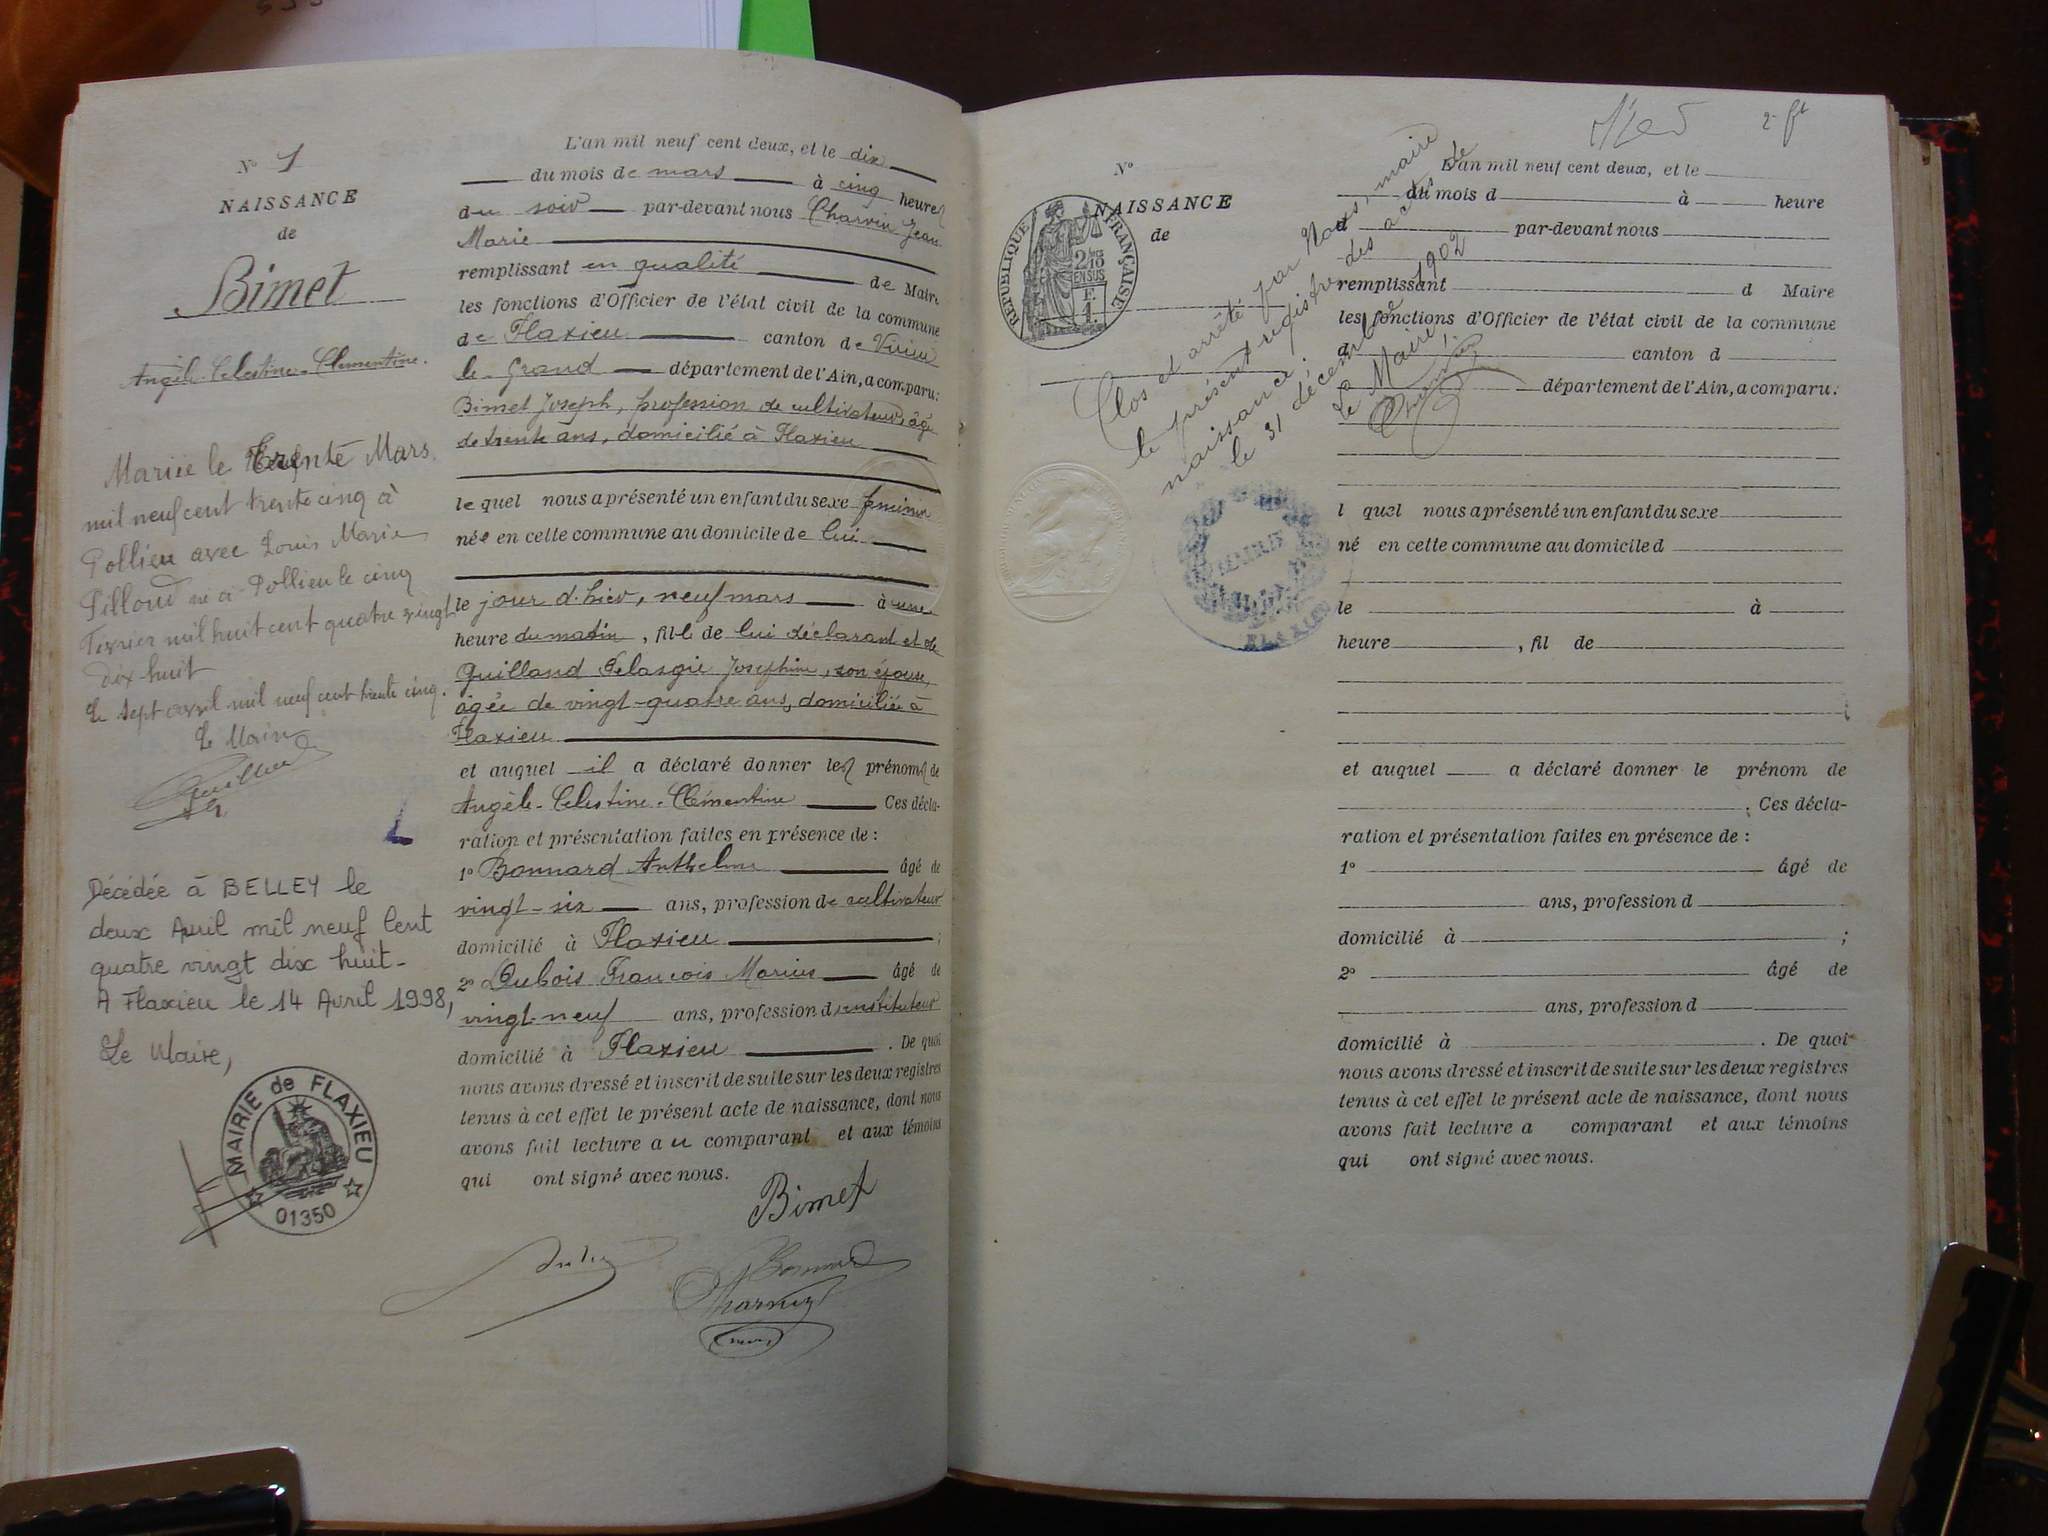 N° 1
NAISSANCE
de
Bimet
Angèle-Celestine-Clementine.
Mariée le trente Mars
mil neuf cent trente cinq à
Pollieu avec Louis Marie
Pilloud né à Pollieu le cinq
Fevrier mil huit cent quatre vingt
dix huit
Le sept avril mil neuf cent trente cinq.
Le Maire
Décédée à BELLEY le
deux Avril mil neuf Cent
quatre vingt dix huit-
A Flaxieu le 14 Avril 1998,
Le Maire,
MAIRIE de FLAXIEU
01350
L'an mil neuf cent deux, et le dix
du mois de mars à cinq heures
du soir par-devant nous Charvin Jean
Marie
remplissant en qualité de Maire
les fonctions d'Officier de l'état civil de la commune
de Flaxieu canton de Virieu
le Grand département de l'Ain, a comparu:
Bimet Joseph, profession de cultivateur, âgé
de trente ans, domicilié à Flaxieu
le quel nous a présenté un enfant du sexe féminin
née en cette commune au domicile de lui
le jour d'hier, neuf mars à une
heure du matin, fille de lui déclarant et de
Guilland Pelasgie Josephine, son épouse,
âgée de vingt-quatre ans, domiciliée à
Flaxieu
et auquel il a déclaré donner les prénoms de
Angèle-Celestine-Clémentine Ces décla-
ration et présentation faites en présence de :
1° Bonnard Anthelme âgé de
vingt-six ans, profession de cultivateur
domicilié à Flaxieu ;
2° Dubois François Marius âgé de
vingt-neuf ans, profession d'instituteur
domicilié à Flaxieu . De quoi
nous avons dressé et inscrit de suite sur les deux registres
tenus à cet effet le présent acte de naissance, dont nous
avons fait lecture au comparant et aux témoins
qui ont signé avec nous.
Bimet
Bonnard
2 ft
N°
NAISSANCE
de
RÉPUBLIQUE FRANÇAISE
2/10
EN SUS
F.
1.
Clos et arrêté par Nous, maire
le présent registre des actes de
naissance
le 31 décembre 1902
Le Maire,
MAIRIE
FLAXIEU
L'an mil neuf cent deux, et le
du mois d à heure
d par-devant nous
remplissant d Maire
les fonctions d'Officier de l'état civil de la commune
d canton d
département de l'Ain, a comparu:
l quel nous a présenté un enfant du sexe
né en cette commune au domicile d
le à
heure , fil de
et auquel a déclaré donner le prénom de
. Ces décla-
ration et présentation faites en présence de :
1° âgé de
ans, profession d
domicilié à ;
2° âgé de
ans, profession d
domicilié à . De quoi
nous avons dressé et inscrit de suite sur les deux registres
tenus à cet effet le présent acte de naissance, dont nous
avons fait lecture a comparant et aux témoins
qui ont signé avec nous.